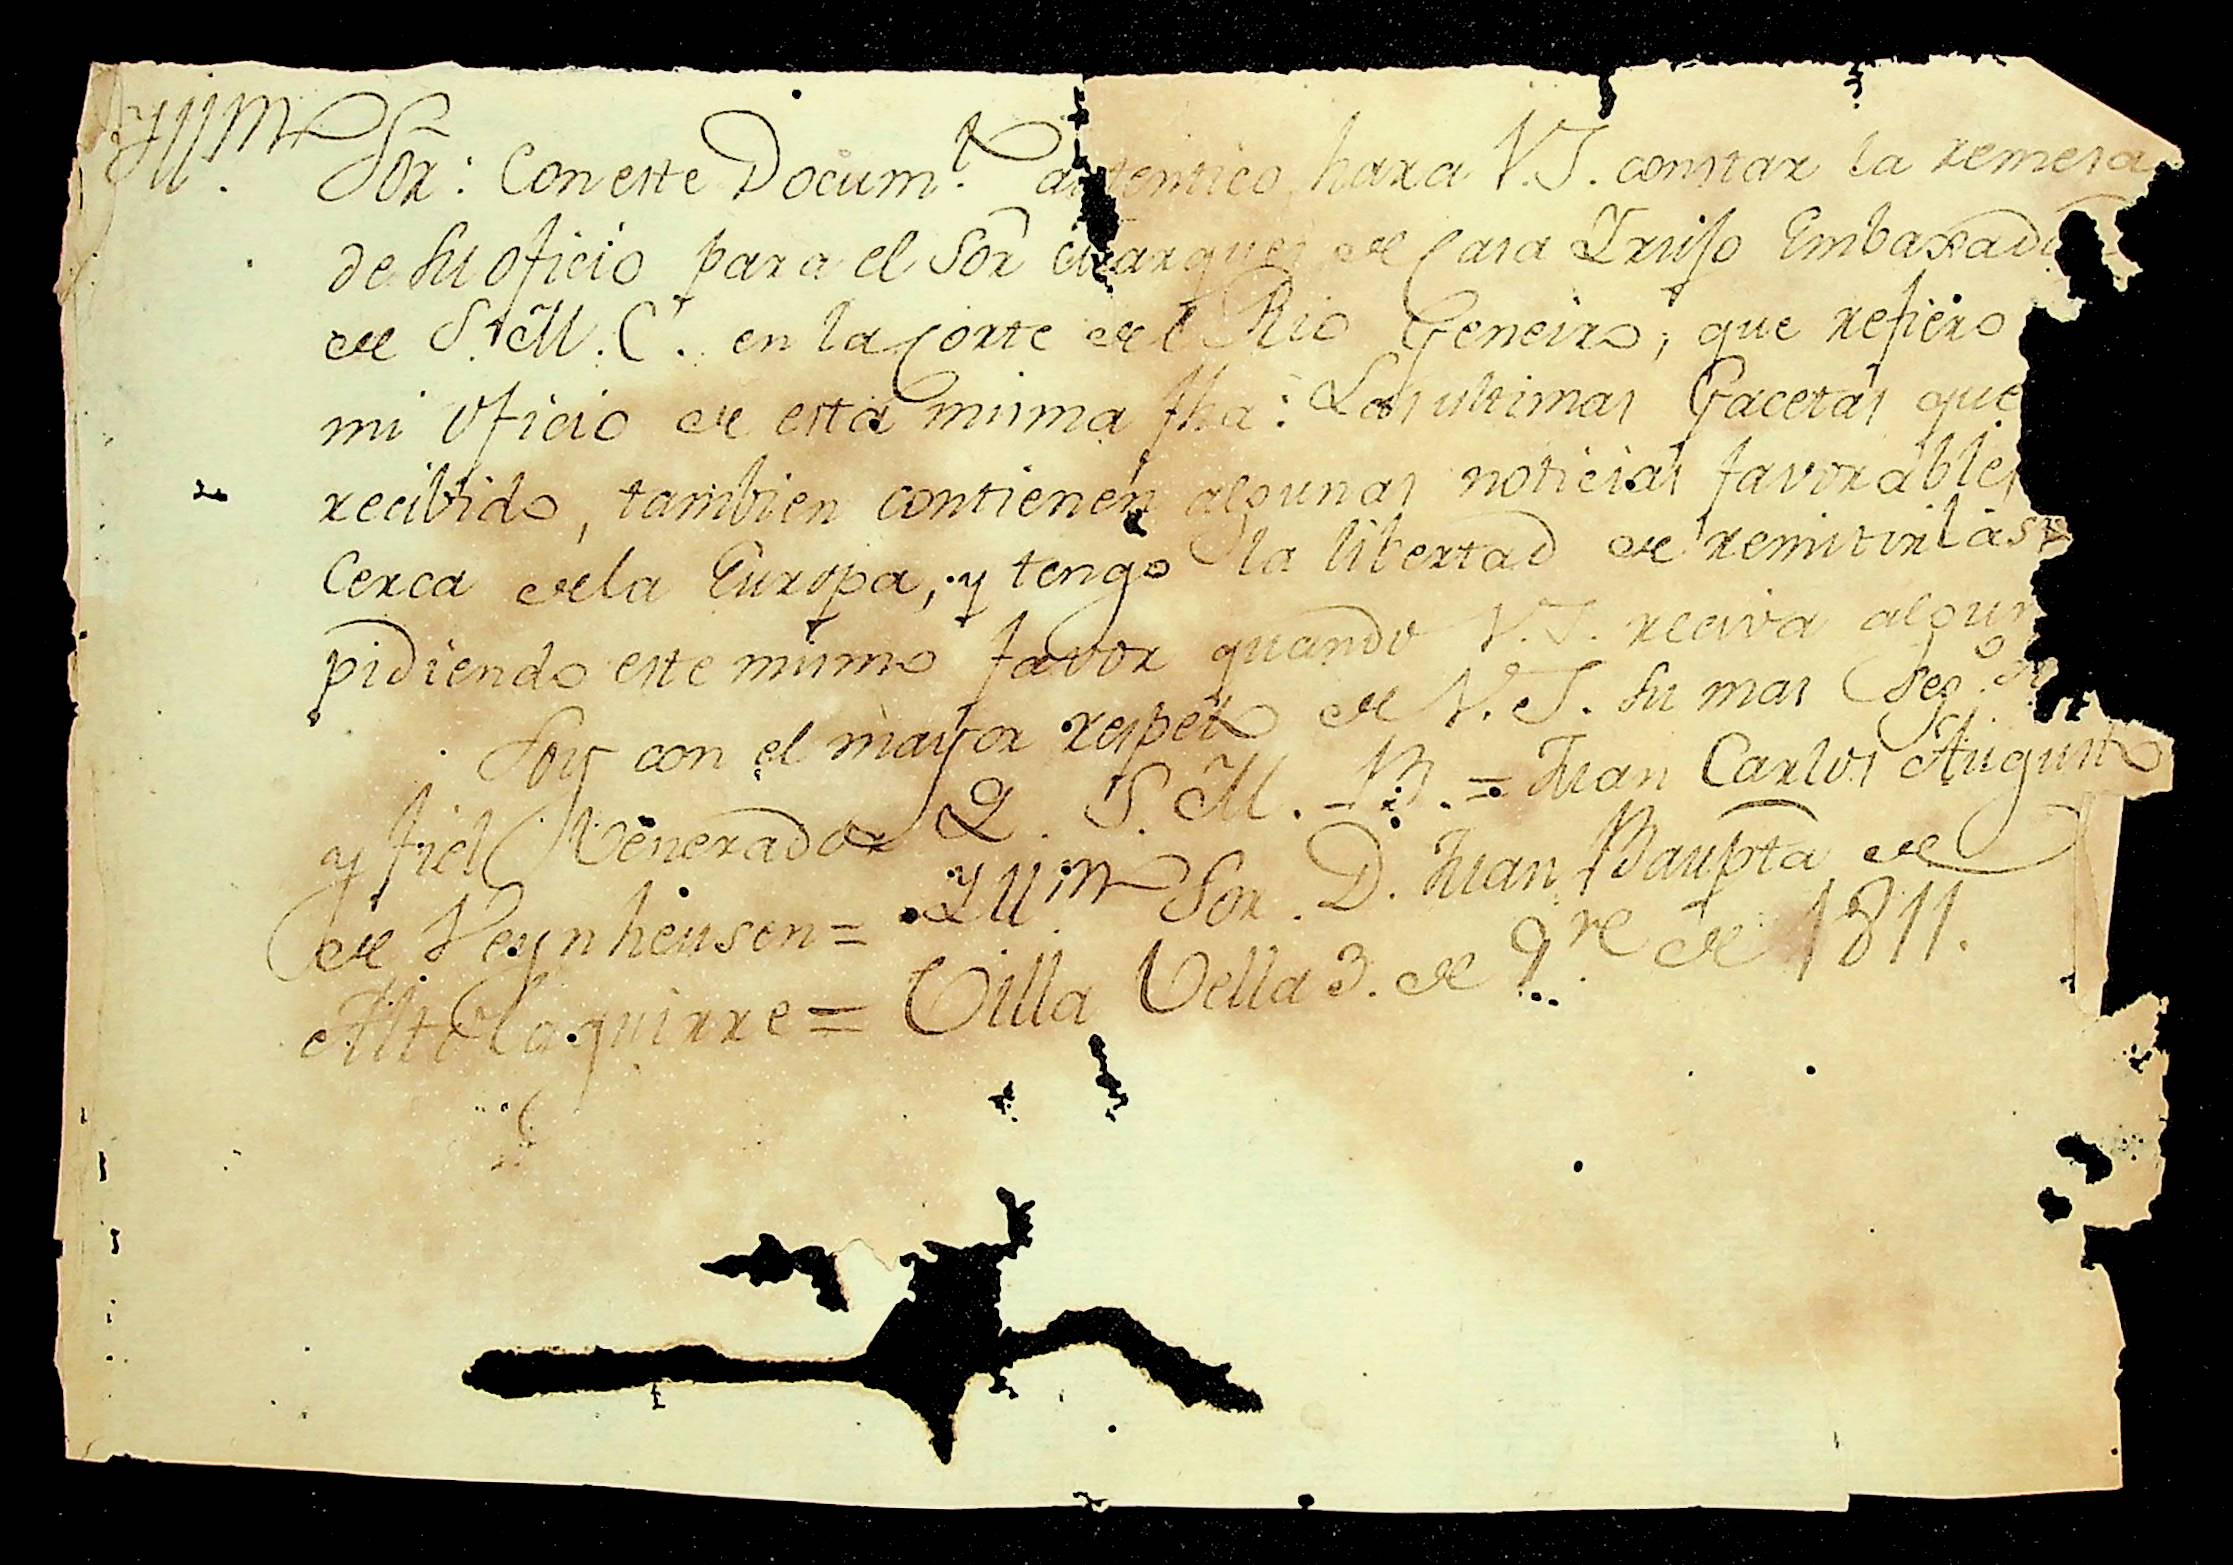 Yllmo Sõr: Con este Docum.to autentico, hara V.S. constar la remesa
de su oficio para el Sõr Marques de Casa Trujo Embaxad
de S. M. C. en la Corte del Rio Geneiro; que refiero
mi oficio de esta misma fha: Las ultimas Gacetas que
recibido, tambien contienen algunas noticias favorables
Cerca dela Europa, y tengo la libertad de remitirlas
pidiendo este mismo favor quando V.S. reciva algun
Soy con el mayor respeto de V.S. su mas Seg.o
y fiel Venerador Q. S. M. B. = Juan Carlos Augusto
de Oeynheusen = Yllmo Sor. D. Juan Baupta de
Altolaguirre = Villa Vella 3. de 9.re de 1811.